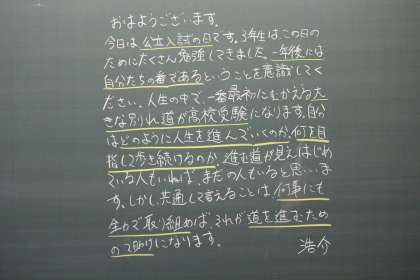 おはようございます。
今日は公立入試の日です。3年生はこの日の
ためにたくさん勉強してきました。一年後には
自分たちの番であるということを意識してく
ださい。人生の中で、一番最初にむかえる大
きな別れ道が高校受験になります。自分
はどのように人生を進んでいくのか、何を目
指して歩を続けるのか、進む道が見えはじめ
ている人もいれば、まだの人もいると思いま
す。しかし、共通して言えることは、何事にも
全力で取り組めば、それが道を進むため
の助けになります。
浩介